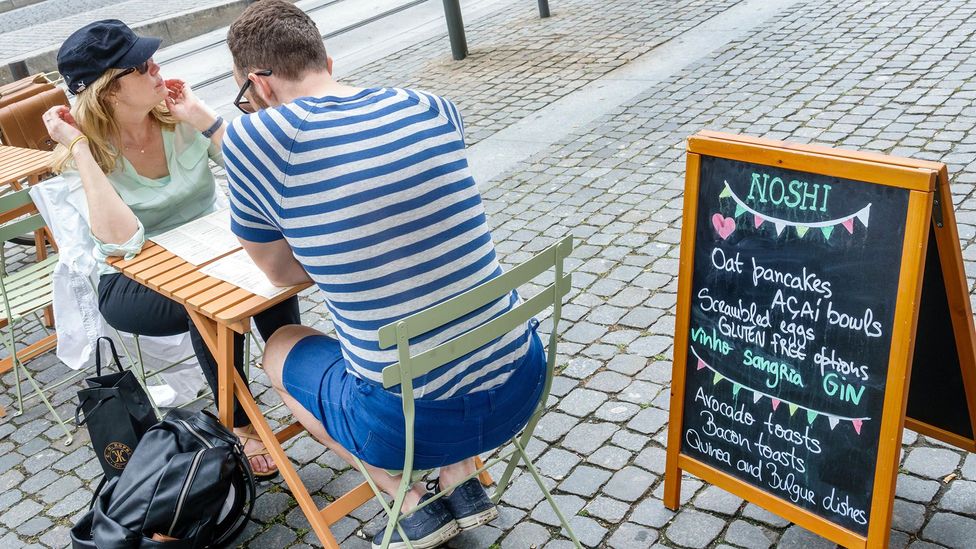 NOSHI
Oat pancakes
AÇAÍ bowls
Scrambled eggs
GLUTEN FREE options
vinho sangria GIN
Avocado toasts
Bacon toasts
Quinoa and Bulgur dishes